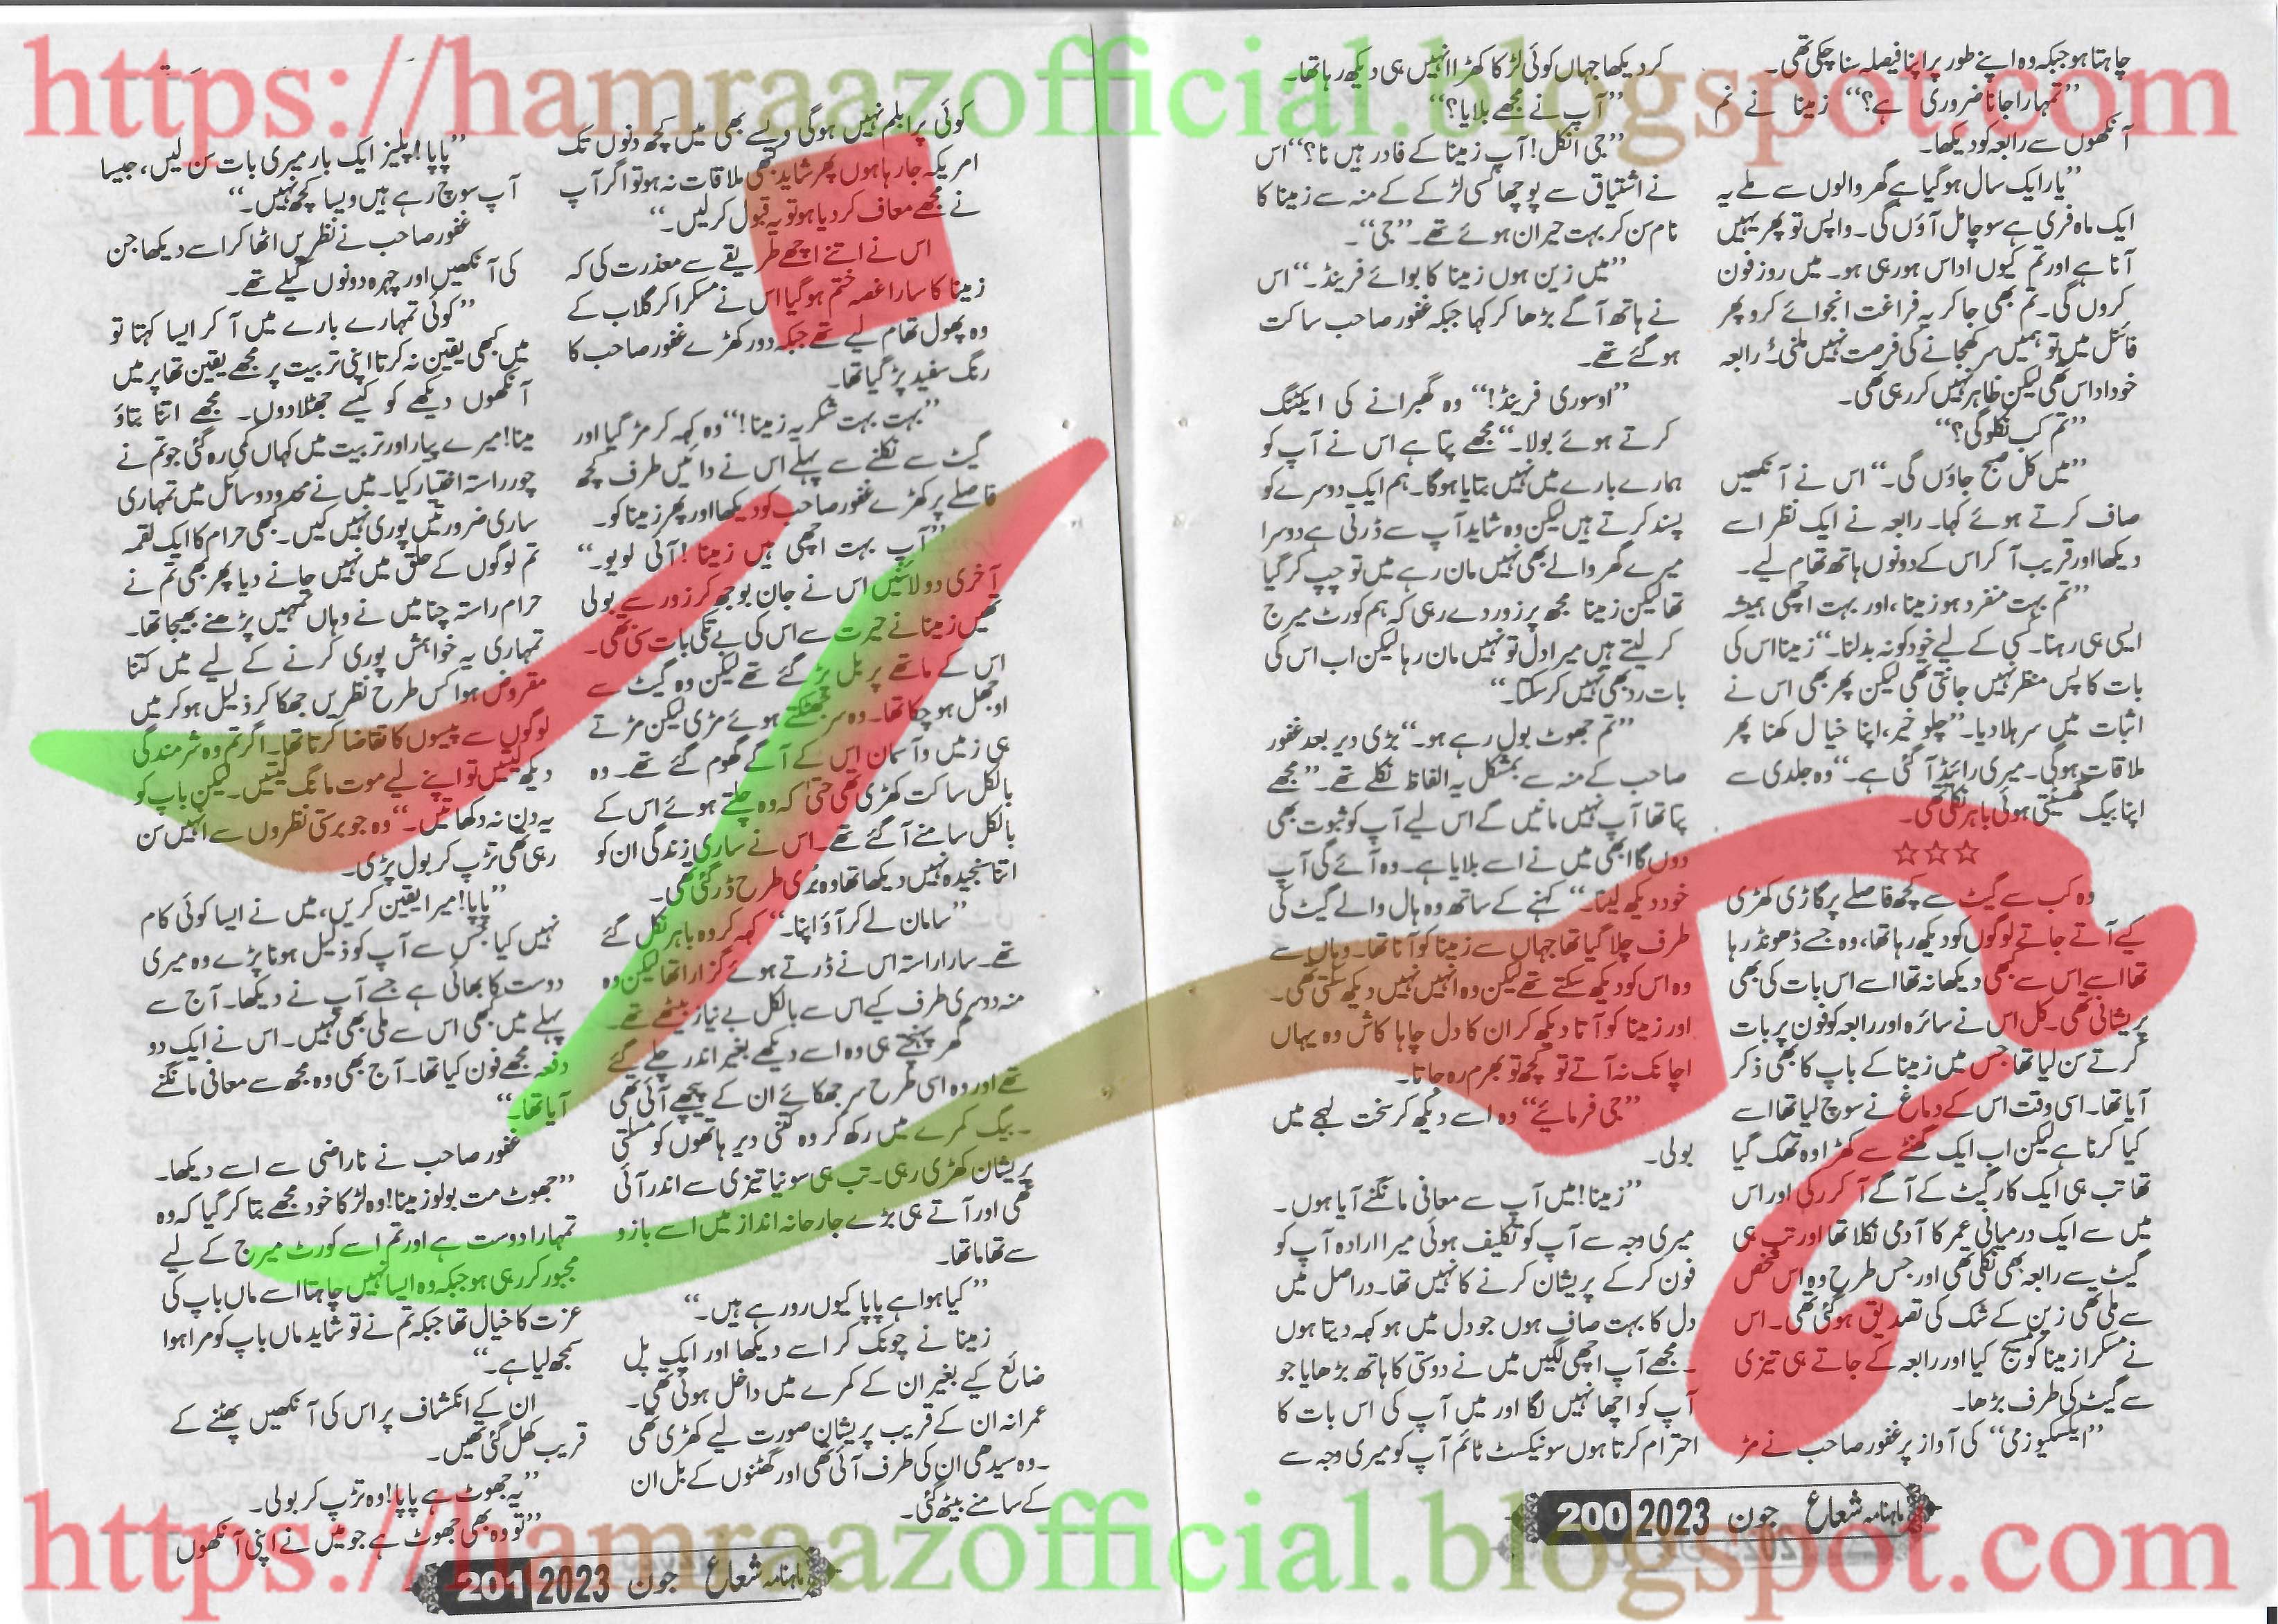 https://hamraazofficial.blogspot.com
چاہتا ہو جبکہ وہ اپنے طور پر اپنا فیصلہ سنا چکی تھی۔
”تمہارا جانا ضروری ہے؟“ زمینا نے نم
آنکھوں سے رابعہ کو دیکھا۔
”یار ایک سال ہو گیا ہے گھر والوں سے ملے یہ
ایک ماہ فری ہے سوچا مل آؤں گی۔ واپس تو پھر یہیں
آنا ہے اور تم کیوں اداس ہو رہی ہو۔ میں روز فون
کروں گی۔ تم بھی جا کر یہ فراغت انجوائے کرو پھر
فائنل میں تو ہمیں سر کھجانے کی فرصت نہیں ملنی۔“ رابعہ
خود اداس تھی لیکن ظاہر نہیں کر رہی تھی۔
”تم کب نکلو گی؟“
”میں کل صبح جاؤں گی۔“ اس نے آنکھیں
صاف کرتے ہوئے کہا۔ رابعہ نے ایک نظر اسے
دیکھا اور قریب آ کر اس کے دونوں ہاتھ تھام لیے۔
”تم بہت منفرد ہو زمینا، اور بہت اچھی ہمیشہ
ایسی ہی رہنا۔ کسی کے لیے خود کو نہ بدلنا۔“ زمینا اس کی
بات کا پس منظر نہیں جانتی تھی لیکن پھر بھی اس نے
اثبات میں سر ہلا دیا۔ ”چلو خیر، اپنا خیال رکھنا پھر
ملاقات ہو گی۔ میری رائیڈ آ گئی ہے۔“ وہ جلدی سے
اپنا بیگ گھسیٹتی ہوئی باہر نکلی تھی۔
☆☆☆
وہ کب سے گیٹ سے کچھ فاصلے پر گاڑی کھڑی
کیے آتے جاتے لوگوں کو دیکھ رہا تھا، وہ جسے ڈھونڈ رہا
تھا اسے اس سے کبھی دیکھا نہ تھا اسے اس بات کی بھی
پریشانی تھی۔ کل اس نے سائرہ اور رابعہ کو فون پر بات
کرتے سن لیا تھا جس میں زمینا کے باپ کا بھی ذکر
آیا تھا۔ اسی وقت اس کے دماغ نے سوچ لیا تھا اسے
کیا کرنا ہے لیکن اب ایک گھنٹے سے کھڑا وہ تھک گیا
تھا تب ہی ایک کار گیٹ کے آگے آ کر رکی اور اس
میں سے ایک درمیانی عمر کا آدمی نکلا تھا اور تب ہی
گیٹ سے رابعہ بھی نکلی تھی اور جس طرح وہ اس شخص
سے ملی تھی زین کے شک کی تصدیق ہو گئی تھی۔ اس
نے مسکرا زمینا کو مسیج کیا اور رابعہ کے جاتے ہی تیزی
سے گیٹ کی طرف بڑھا۔
”ایکسکیوزمی“ کی آواز پر غفور صاحب نے مڑ
کر دیکھا جہاں کوئی لڑکا کھڑا انہیں ہی دیکھ رہا تھا۔
”آپ نے مجھے بلایا؟“
”جی انکل! آپ زمینا کے فادر ہیں نا؟“ اس
نے اشتیاق سے پوچھا کسی لڑکے کے منہ سے زمینا کا
نام سن کر بہت حیران ہوئے تھے۔ ”جی“۔
”میں زین ہوں زمینا کا بوائے فرینڈ۔“ اس
نے ہاتھ آگے بڑھا کر کہا جبکہ غفور صاحب ساکت
ہو گئے تھے۔
”اوسوری فرینڈ!“ وہ گھبرانے کی ایکٹنگ
کرتے ہوئے بولا۔ ”مجھے پتا ہے اس نے آپ کو
ہمارے بارے میں نہیں بتایا ہو گا۔ ہم ایک دوسرے کو
پسند کرتے ہیں لیکن وہ شاید آپ سے ڈرتی ہے دوسرا
میرے گھر والے بھی نہیں مان رہے میں تو چپ کر گیا
تھا لیکن زمینا مجھ پر زور دے رہی کہ ہم کورٹ میرج
کر لیتے ہیں میرا دل تو نہیں مان رہا لیکن اب اس کی
بات رد بھی نہیں کر سکتا۔“
”تم جھوٹ بول رہے ہو۔“ بڑی دیر بعد غفور
صاحب کے منہ سے بمشکل یہ الفاظ نکلے تھے۔ ”مجھے
پتا تھا آپ نہیں مانیں گے اس لیے آپ کو ثبوت بھی
دوں گا ابھی میں نے اسے بلایا ہے۔ وہ آئے گی آپ
خود دیکھ لینا۔“ کہنے کے ساتھ وہ ہال والے گیٹ کی
طرف چلا گیا تھا جہاں سے زمینا کو آنا تھا۔ وہاں سے
وہ اس کو دیکھ سکتے تھے لیکن وہ انہیں نہیں دیکھ سکتی تھی۔
اور زمینا کو آتا دیکھ کر ان کا دل چاہا کاش وہ یہاں
اچانک نہ آتے تو کچھ تو بھرم رہ جاتا۔
”جی فرمائیے“ وہ اسے دیکھ کر سخت لہجے میں
بولی۔
”زمینا! میں آپ سے معافی مانگنے آیا ہوں۔
میری وجہ سے آپ کو تکلیف ہوئی میرا ارادہ آپ کو
فون کر کے پریشان کرنے کا نہیں تھا۔ دراصل میں
دل کا بہت صاف ہوں جو دل میں ہو کہہ دیتا ہوں
۔ مجھے آپ اچھی لگیں میں نے دوستی کا ہاتھ بڑھایا جو
آپ کو اچھا نہیں لگا اور میں آپ کی اس بات کا
احترام کرتا ہوں سو نیکسٹ ٹائم آپ کو میری وجہ سے
ماہنامہ شعاع جون 2023 200
کوئی پرابلم نہیں ہو گی ویسے بھی میں کچھ دنوں تک
امریکہ جا رہا ہوں پھر شاید کبھی ملاقات نہ ہو تو اگر آپ
نے مجھے معاف کر دیا ہو تو یہ قبول کر لیں۔“
اس نے اتنے اچھے طریقے سے معذرت کی کہ
زمینا کا سارا غصہ ختم ہو گیا اس نے مسکرا کر گلاب کے
وہ پھول تھام لیے تھے جبکہ دور کھڑے غفور صاحب کا
رنگ سفید پڑ گیا تھا۔
”بہت بہت شکریہ زمینا!“ وہ کہہ کر مڑ گیا اور
گیٹ سے نکلنے سے پہلے اس نے دائیں طرف کچھ
فاصلے پر کھڑے غفور صاحب کو دیکھا اور پھر زمینا کو۔
”آپ بہت اچھی ہیں زمینا! آئی لو یو۔“
آخری دو لائنیں اس نے جان بوجھ کر زور سے بولی
تھیں زمینا نے حیرت سے اس کی بے تکی بات سنی تھی۔
اس کے ماتھے پر بل پڑ گئے تھے لیکن وہ گیٹ سے
اوجھل ہو چکا تھا۔ وہ سر جھٹکتے ہوئے مڑی لیکن مڑتے
ہی زمیں و آسمان اس کے آگے گھوم گئے تھے۔ وہ
بالکل ساکت کھڑی تھی حتیٰ کہ وہ چلتے ہوئے اس کے
بالکل سامنے آ گئے تھے۔ اس نے ساری زندگی ان کو
اتنا سنجیدہ نہیں دیکھا تھا وہ بُری طرح ڈر گئی تھی۔
”سامان لے کر آؤ اپنا۔“ کہہ کر وہ باہر نکل گئے
تھے۔ سارا راستہ اس نے ڈرتے ہوئے گزارا تھا لیکن وہ
منہ دوسری طرف کیے اس سے بالکل بے نیاز بیٹھے تھے۔
گھر پہنچتے ہی وہ اسے دیکھے بغیر اندر چلے گئے
تھے اور وہ اسی طرح سر جھکائے ان کے پیچھے آئی تھی
۔ بیگ کمرے میں رکھ کر وہ کتنی دیر ہاتھوں کو مسلتی
پریشان کھڑی رہی۔ تب ہی سونیا تیزی سے اندر آئی
تھی اور آتے ہی بڑے جارحانہ انداز میں اسے بازو
سے تھاما تھا۔
”کیا ہوا ہے پاپا کیوں رو رہے ہیں۔“
زمینا نے چونک کر اسے دیکھا اور ایک پل
ضائع کیے بغیر ان کے کمرے میں داخل ہوئی تھی۔
عمرانہ ان کے قریب پریشان صورت لیے کھڑی تھی
۔ وہ سیدھی ان کی طرف آئی تھی اور گھٹنوں کے بل ان
کے سامنے بیٹھ گئی۔
”پاپا! پلیز ایک بار میری بات سن لیں، جیسا
آپ سوچ رہے ہیں ویسا کچھ نہیں۔“
غفور صاحب نے نظریں اٹھا کر اسے دیکھا جن
کی آنکھیں اور چہرہ دونوں گیلے تھے۔
”کوئی تمہارے بارے میں آ کر ایسا کہتا تو
میں کبھی یقین نہ کرتا اپنی تربیت پر مجھے یقین تھا پر میں
آنکھوں دیکھے کو کیسے جھٹلا دوں۔ مجھے اتنا بتاؤ
مینا! میرے پیار اور تربیت میں کہاں کمی رہ گئی جو تم نے
چور راستہ اختیار کیا۔ میں نے محدود وسائل میں تمہاری
ساری ضرورتیں پوری نہیں کیں۔ کبھی حرام کا ایک لقمہ
تم لوگوں کے حلق میں نہیں جانے دیا پھر بھی تم نے
حرام راستہ چنا میں نے وہاں تمہیں پڑھنے بھیجا تھا۔
تمہاری یہ خواہش پوری کرنے کے لیے میں کتنا
مقروض ہوا کس طرح نظریں جھکا کر ذلیل ہو کر میں
لوگوں سے پیسوں کا تقاضا کرتا تھا۔ اگر تم وہ شرمندگی
دیکھ لیتیں تو اپنے لیے موت مانگ لیتیں۔ لیکن باپ کو
یہ دن نہ دکھاتیں۔“ وہ جو برستی نظروں سے انہیں سن
رہی تھی تڑپ کر بول پڑی۔
”پاپا! میرا یقین کریں، میں نے ایسا کوئی کام
نہیں کیا جس سے آپ کو ذلیل ہونا پڑے وہ میری
دوست کا بھائی ہے جسے آپ نے دیکھا۔ آج سے
پہلے میں کبھی اس سے ملی بھی نہیں۔ اس نے ایک دو
دفعہ مجھے فون کیا تھا۔ آج بھی وہ مجھ سے معافی مانگنے
آیا تھا۔“
غفور صاحب نے ناراضی سے اسے دیکھا۔
”جھوٹ مت بولو زمینا! وہ لڑکا خود مجھے بتا کر گیا کہ وہ
تمہارا دوست ہے اور تم اسے کورٹ میرج کے لیے
مجبور کر رہی ہو جبکہ وہ ایسا نہیں چاہتا اسے ماں باپ کی
عزت کا خیال تھا جبکہ تم نے تو شاید ماں باپ کو مرا ہوا
سمجھ لیا ہے۔“
ان کے انکشاف پر اس کی آنکھیں پھٹنے کے
قریب کھل گئی تھیں۔
”یہ جھوٹ ہے پاپا! وہ تڑپ کر بولی۔
”تو وہ بھی جھوٹ ہے جو میں نے اپنی آنکھوں
ماہنامہ شعاع جون 2023 201
https://hamraazofficial.blogspot.com